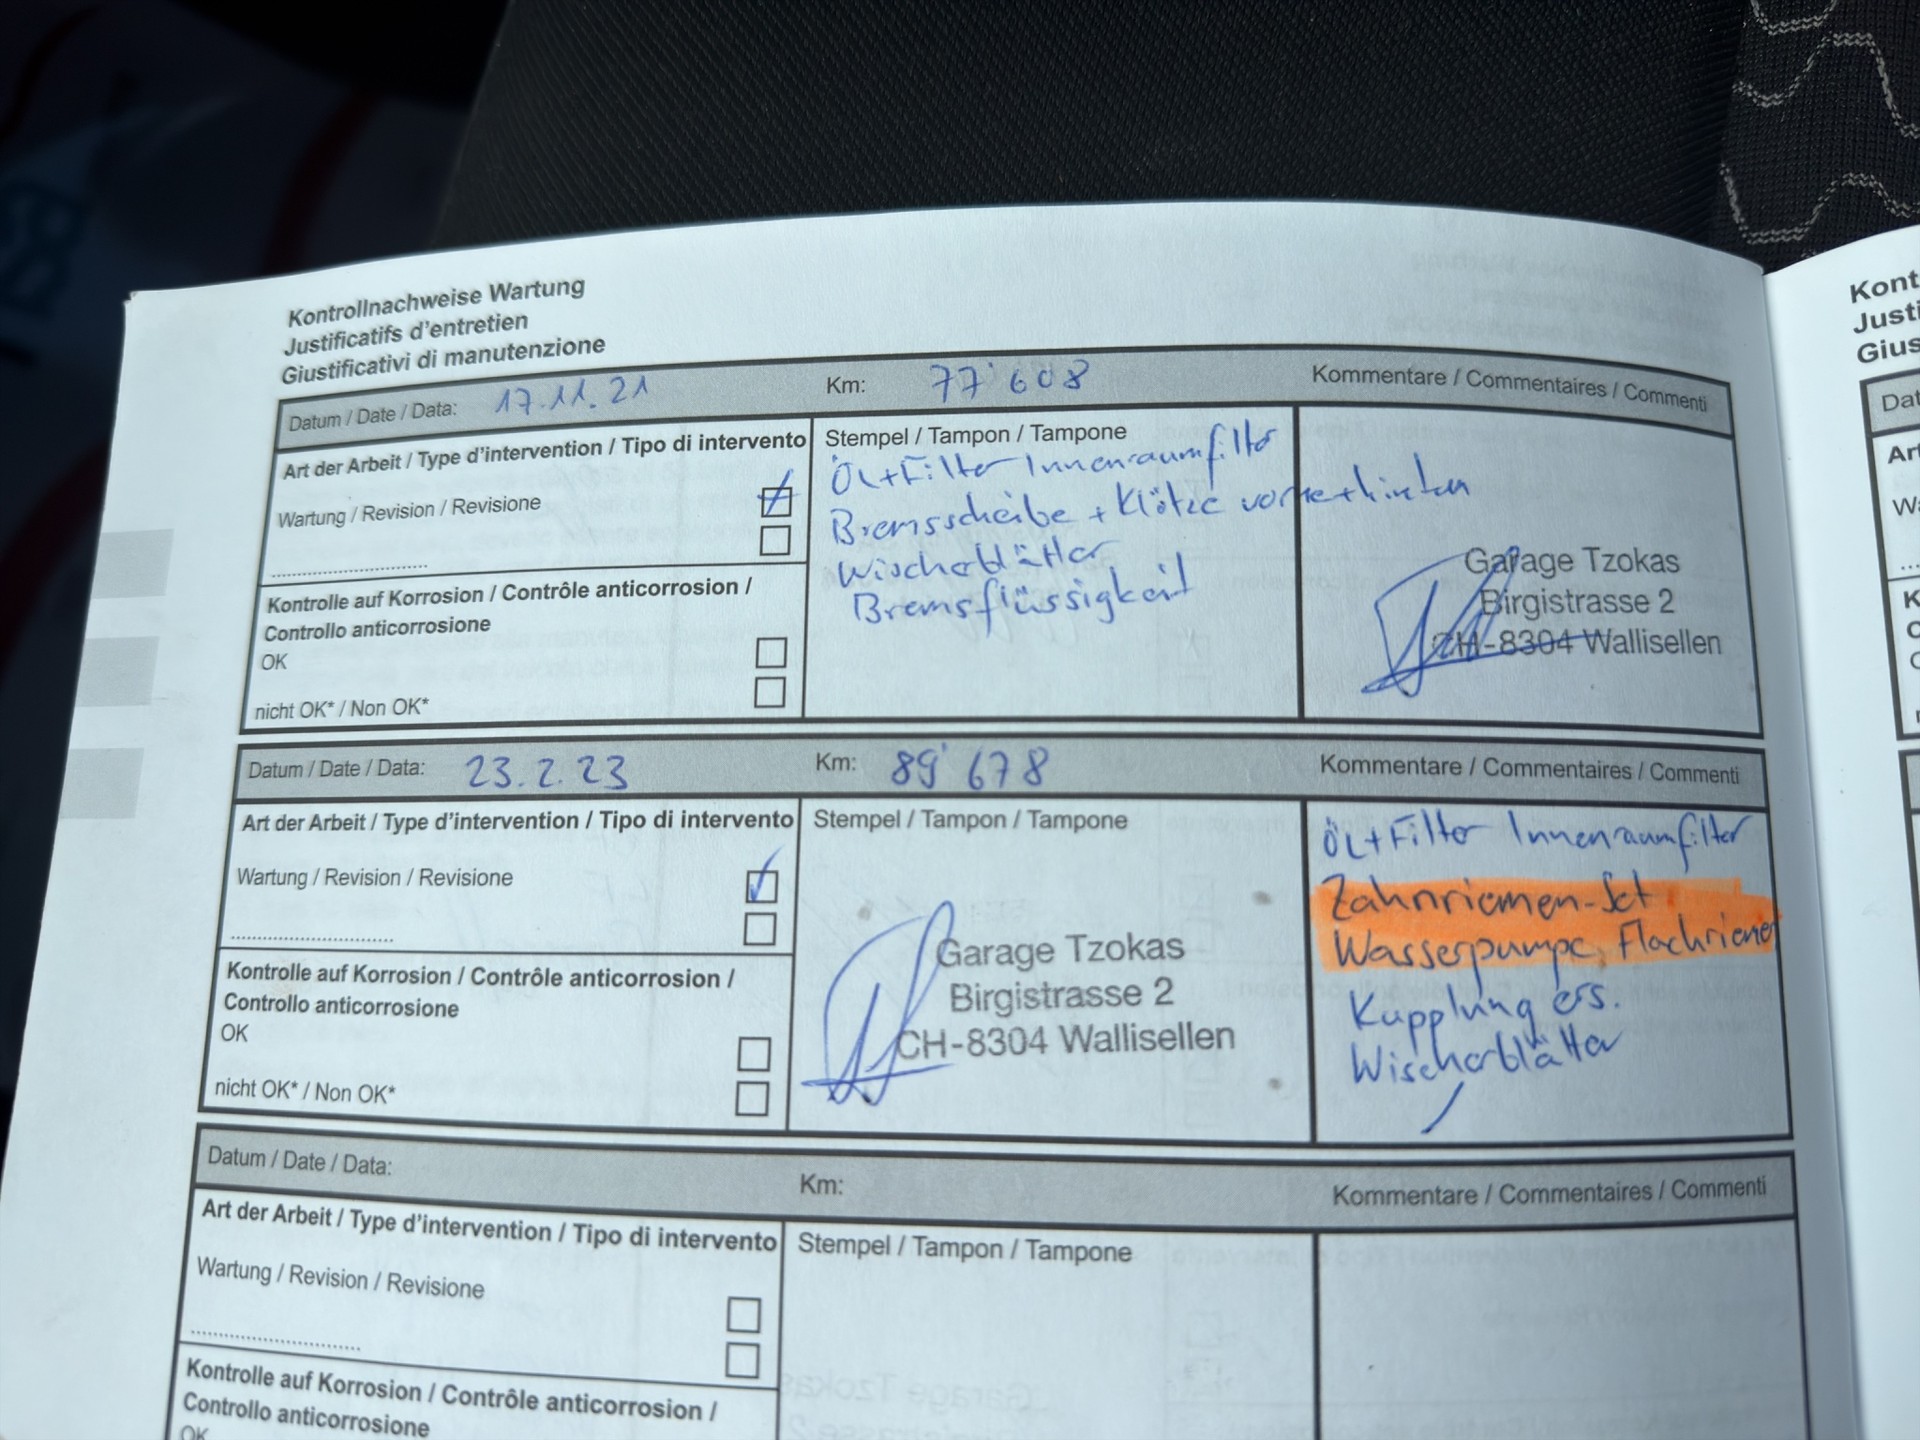 Kontrollnachweise Wartung
Justificatifs d'entretien
Giustificativi di manutenzione
Datum / Date / Data: 17.11.21 Km: 77'608 Kommentare / Commentaires / Commenti
Art der Arbeit / Type d'intervention / Tipo di intervento
Wartung / Revision / Revisione
Kontrolle auf Korrosion / Contrôle anticorrosion /
Controllo anticorrosione
OK
nicht OK* / Non OK*
Stempel / Tampon / Tampone
ÖL+Filter Innenraumfilter
Bremsscheibe + Klötze vorne+hinten
Wischerblätter
Bremsflüssigkeit
Garage Tzokas
Birgistrasse 2
CH-8304 Wallisellen
Datum / Date / Data: 23.2.23 Km: 89'678 Kommentare / Commentaires / Commenti
Art der Arbeit / Type d'intervention / Tipo di intervento
Wartung / Revision / Revisione
Kontrolle auf Korrosion / Contrôle anticorrosion /
Controllo anticorrosione
OK
nicht OK* / Non OK*
Stempel / Tampon / Tampone
Garage Tzokas
Birgistrasse 2
CH-8304 Wallisellen
ÖL+Filter Innenraumfilter
Zahnriemen-Set
Wasserpumpe, Flachriemen
Kupplung ers.
Wischerblätter
Datum / Date / Data: Km: Kommentare / Commentaires / Commenti
Art der Arbeit / Type d'intervention / Tipo di intervento
Wartung / Revision / Revisione
Kontrolle auf Korrosion / Contrôle anticorrosion /
Controllo anticorrosione
OK
Stempel / Tampon / Tampone
Kont
Justi
Gius
Dat
Art
Wa